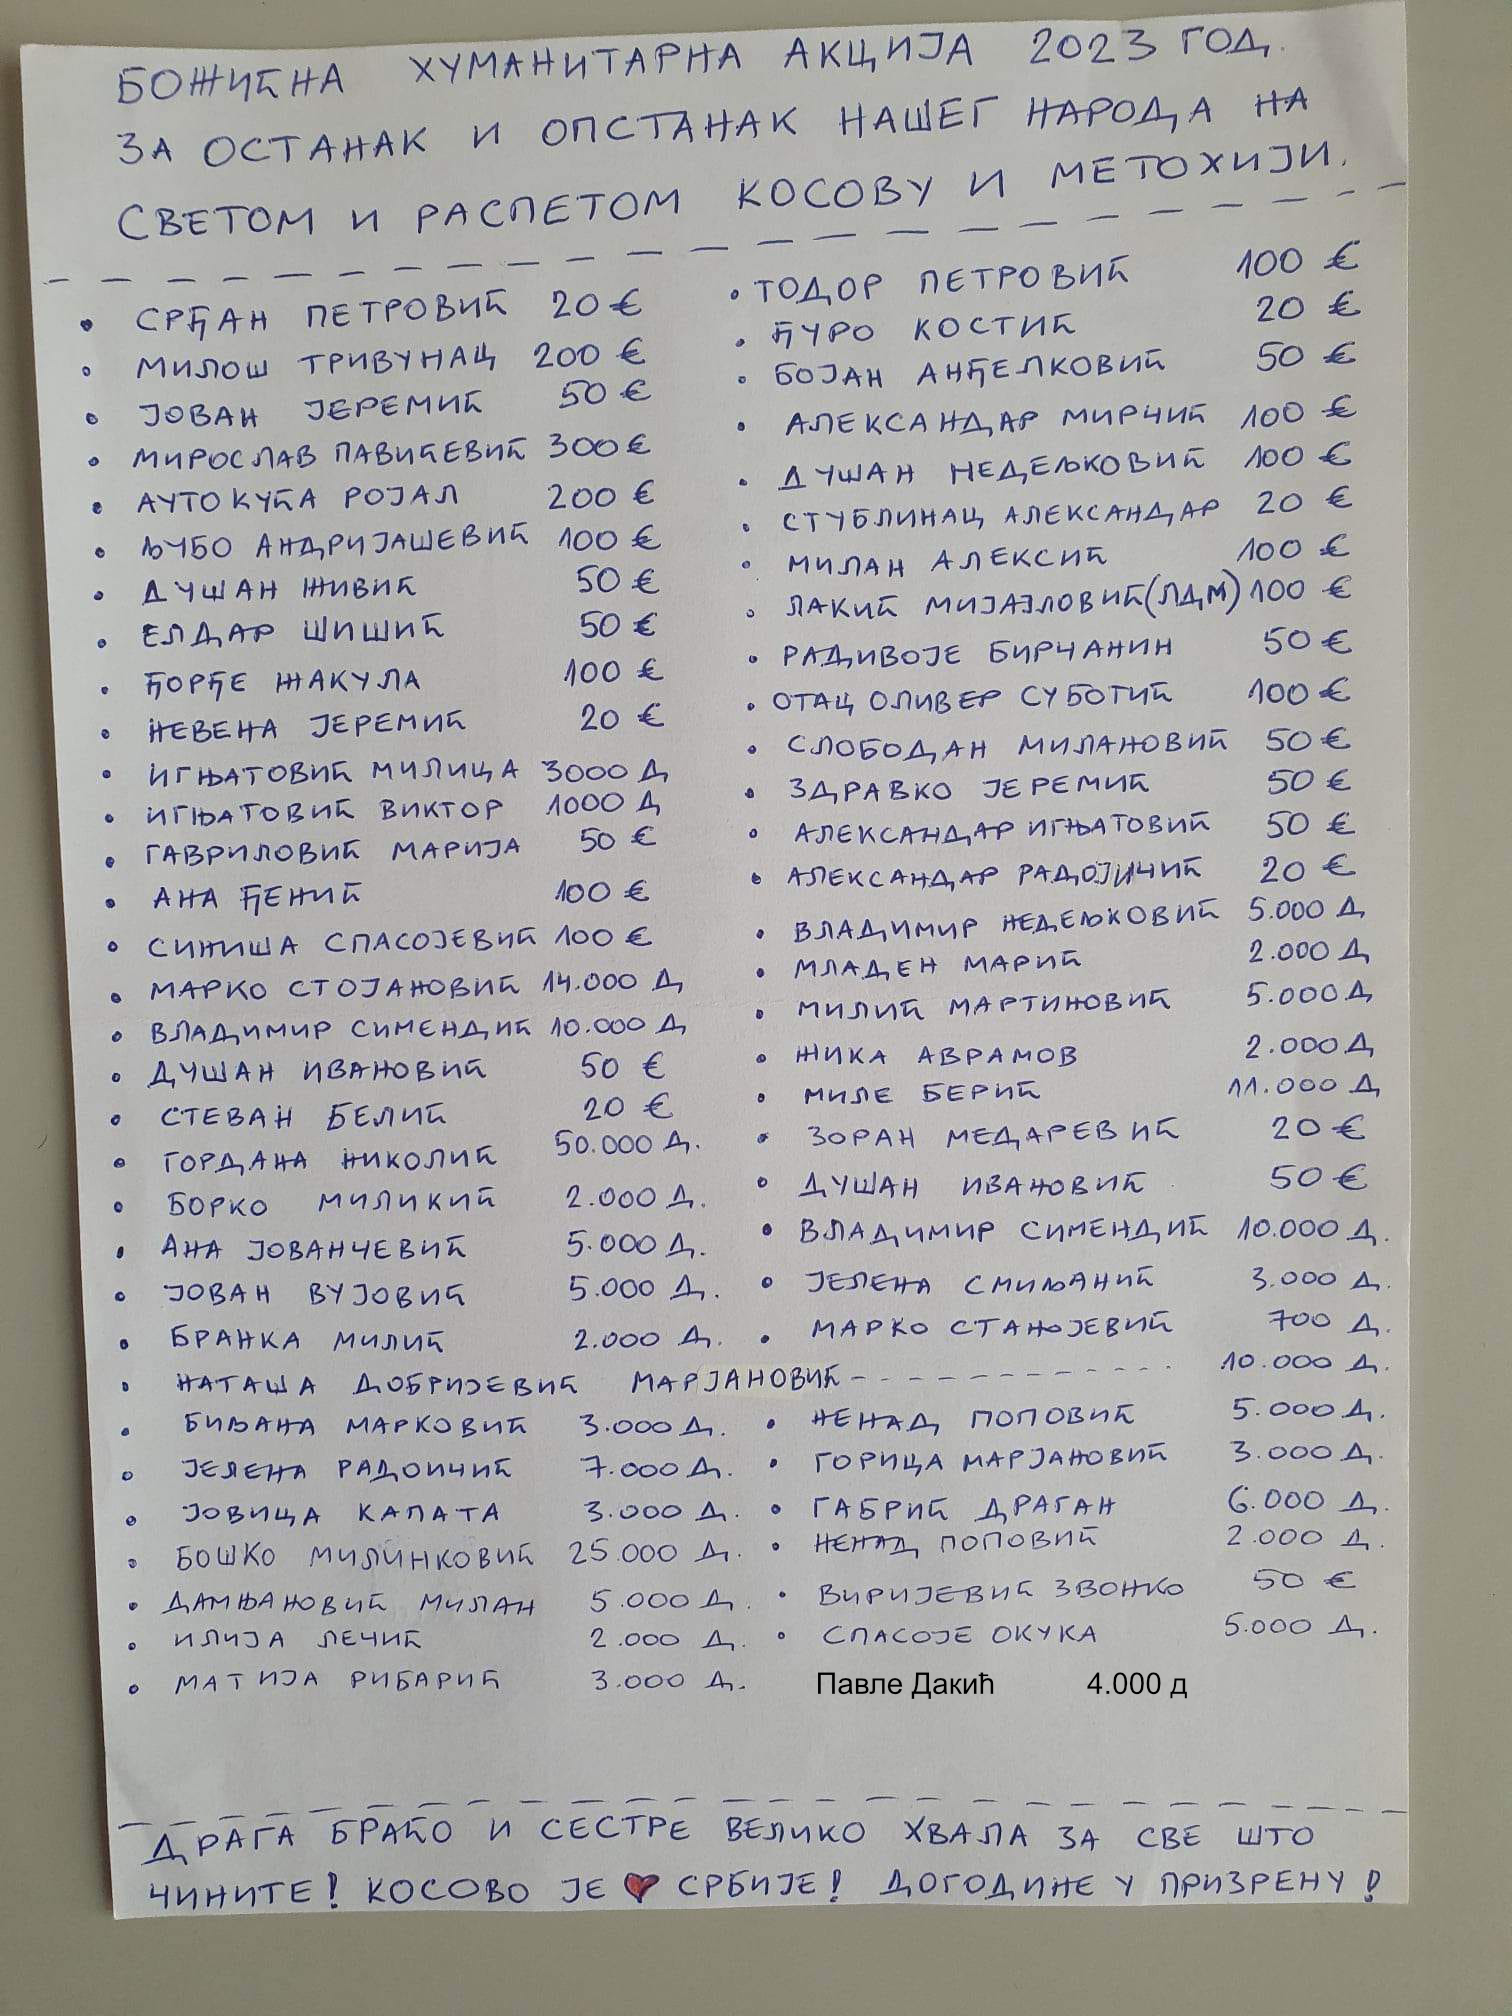 БОЖИЋНА ХУМАНИТАРНА АКЦИЈА 2023 ГОД.
ЗА ОСТАНАК И ОПСТАНАК НАШЕГ НАРОДА НА
СВЕТОМ И РАСПЕТОМ КОСОВУ И МЕТОХИЈИ.
• СРЂАН ПЕТРОВИЋ 20 €
• МИЛОШ ТРИВУНАЦ 200 €
• ЈОВАН ЈЕРЕМИЋ 50 €
• МИРОСЛАВ ПАВИЋЕВИЋ 300 €
• АУТО КУЋА РОЈАЛ 200 €
• ЉУБО АНДРИЈАШЕВИЋ 100 €
• ДУШАН ЖИВИЋ 50 €
• ЕЛДАР ШИШИЋ 50 €
• ЂОРЂЕ ЖАКУЛА 100 €
• НЕВЕНА ЈЕРЕМИЋ 20 €
• ИГЊАТОВИЋ МИЛИЦА 3000 Д
• ИГЊАТОВИЋ ВИКТОР 1000 Д
• ГАВРИЛОВИЋ МАРИЈА 50 €
• АНА ЂЕНИЋ 100 €
• СИНИША СПАСОЈЕВИЋ 100 €
• МАРКО СТОЈАНОВИЋ 14.000 Д
• ВЛАДИМИР СИМЕНДИЋ 10.000 Д
• ДУШАН ИВАНОВИЋ 50 €
• СТЕВАН БЕЛИЋ 20 €
• ГОРДАНА НИКОЛИЋ 50.000 Д.
• БОРКО МИЛИКИЋ 2.000 Д.
• АНА ЈОВАНЧЕВИЋ 5.000 Д.
• ЈОВАН ВУЈОВИЋ 5.000 Д.
• БРАНКА МИЛИЋ 2.000 Д.
• ТОДОР ПЕТРОВИЋ 100 €
• ЂУРО КОСТИЋ 20 €
• БОЈАН АНЂЕЛКОВИЋ 50 €
• АЛЕКСАНДАР МИРЧИЋ 100 €
• ДУШАН НЕДЕЉКОВИЋ 100 €
• СТУБЛИНАЦ АЛЕКСАНДАР 20 €
• МИЛАН АЛЕКСИЋ 100 €
• ЛАКИЋ МИЈАЈЛОВИЋ (ЛДМ) 100 €
• РАДИВОЈЕ БИРЧАНИН 50 €
• ОТАЦ ОЛИВЕР СУБОТИЋ 100 €
• СЛОБОДАН МИЛАНОВИЋ 50 €
• ЗДРАВКО ЈЕРЕМИЋ 50 €
• АЛЕКСАНДАР ИГЊАТОВИЋ 50 €
• АЛЕКСАНДАР РАДОЈИЧИЋ 20 €
• ВЛАДИМИР НЕДЕЉКОВИЋ 5.000 Д
• МЛАДЕН МАРИЋ 2.000 Д
• МИЛИЋ МАРТИНОВИЋ 5.000 Д
• ЖИКА АВРАМОВ 2.000 Д
• МИЛЕ БЕРИЋ 11.000 Д
• ЗОРАН МЕДАРЕВИЋ 20 €
• ДУШАН ИВАНОВИЋ 50 €
• ВЛАДИМИР СИМЕНДИЋ 10.000 Д.
• ЈЕЛЕНА СМИЉАНИЋ 3.000 Д.
• МАРКО СТАНОЈЕВИЋ 700 Д.
• НАТАША ДОБРИЈЕВИЋ МАРЈАНОВИЋ ---------- 10.000 Д.
• БИЉАНА МАРКОВИЋ 3.000 Д.
• ЈЕЛЕНА РАДОИЧИЋ 7.000 Д.
• ЈОВИЦА КАПАТА 3.000 Д.
• БОШКО МИЛИНКОВИЋ 25.000 Д.
• ДАМЊАНОВИЋ МИЛАН 5.000 Д.
• ИЛИЈА ЛЕЧИЋ 2.000 Д.
• МАТИЈА РИБАРИЋ 3.000 Д.
• НЕНАД ПОПОВИЋ 5.000 Д.
• ГОРИЦА МАРЈАНОВИЋ 3.000 Д.
• ГАБРИЋ ДРАГАН 6.000 Д.
• НЕНАД ПОПОВИЋ 2.000 Д.
• ВИРИЈЕВИЋ ЗВОНКО 50 €
• СПАСОЈЕ ОКУКА 5.000 Д.
Павле Дакић 4.000 д
ДРАГА БРАЋО И СЕСТРЕ ВЕЛИКО ХВАЛА ЗА СВЕ ШТО
ЧИНИТЕ! КОСОВО ЈЕ ❤ СРБИЈЕ! ДОГОДИНЕ У ПРИЗРЕНУ!